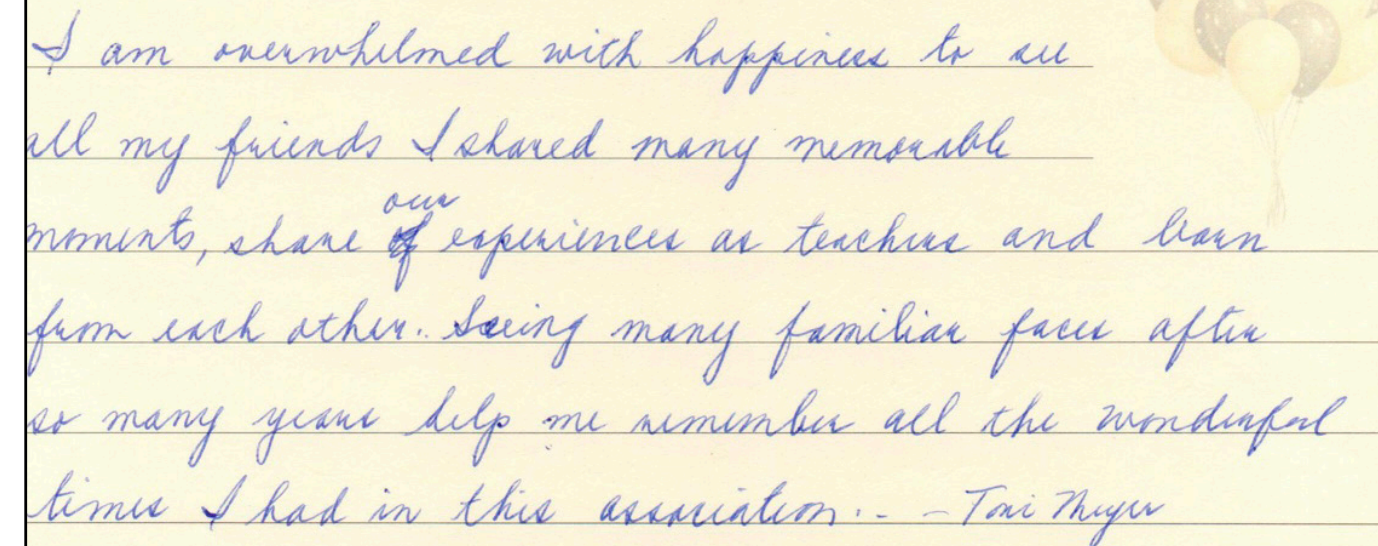 I am overwhelmed with happiness to see
all my friends I shared many memorable
moments, share our experiences as teachers and learn
from each other. Seeing many familiar faces after
so many years help me remember all the wonderful
times I had in this association. - Toni Meyer